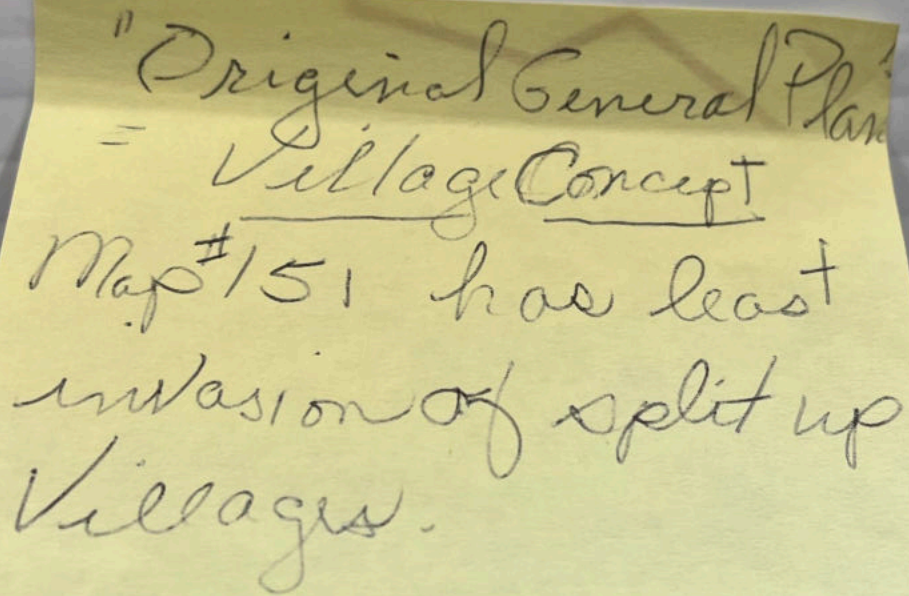 "Original General Plan"
= Village Concept
Map #151 has least
invasion of split up
Villages.